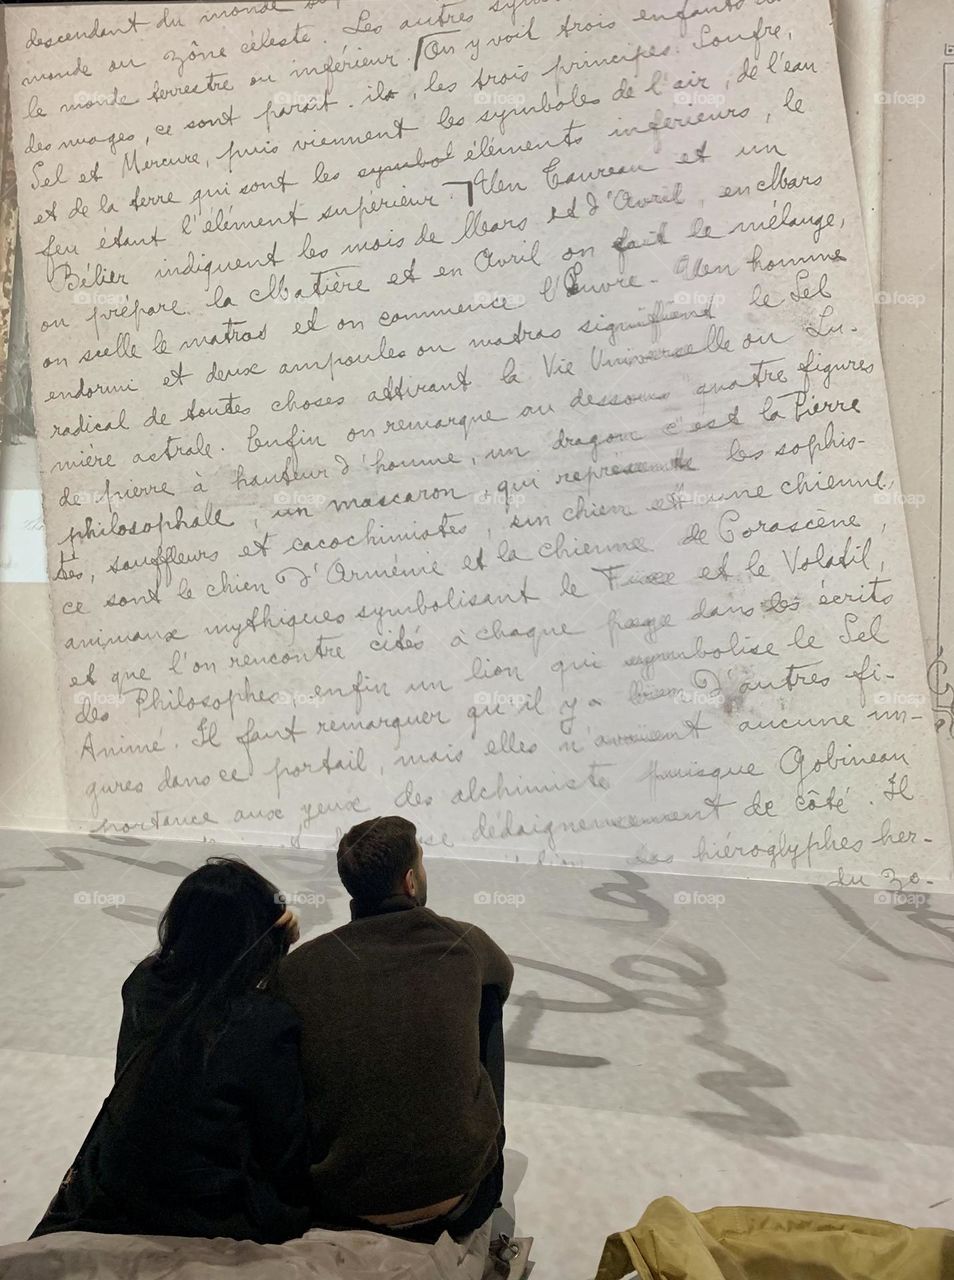 descendant du monde
monde ou zône céleste. Les autres
le monde terrestre ou inférieur. On y voit trois enfants
des nuages, ce sont parait-il, les trois principes. Soufre,
Sel et Mercure, puis viennent les symboles de l'air, de l'eau
et de la terre qui sont les symbol éléments inférieurs, le
feu étant l'élément supérieur. Un Taureau et un
Bélier indiquent les mois de Mars et d'Avril, en Mars
on prépare la Matière et en Avril on fait le mélange,
on scelle le matras et on commence l'Œuvre. Un homme
endormi et deux ampoules ou matras signifient le Sel
radical de toutes choses attirant la Vie Universelle ou Lu-
mière astrale. Enfin on remarque au dessous quatre figures
de pierre à hauteur d'homme, un dragon c'est la Pierre
philosophale, un mascaron qui représente les sophis-
tes, souffleurs et cacochimistes, un chien et une chienne,
ce sont le chien d'Arménie et la chienne de Corascène,
animaux mythiques symbolisant le Fixe et le Volatil,
et que l'on rencontre cités à chaque page dans les écrits
des Philosophes, enfin un lion qui symbolise le Sel
Animé. Il faut remarquer qu'il y a bien d'autres fi-
gures dans ce portail, mais elles n'avaient aucune im-
portance aux yeux des alchimistes puisque Gobineau
dédaigneusement de côté. Il
hiéroglyphes her-
du Zo-